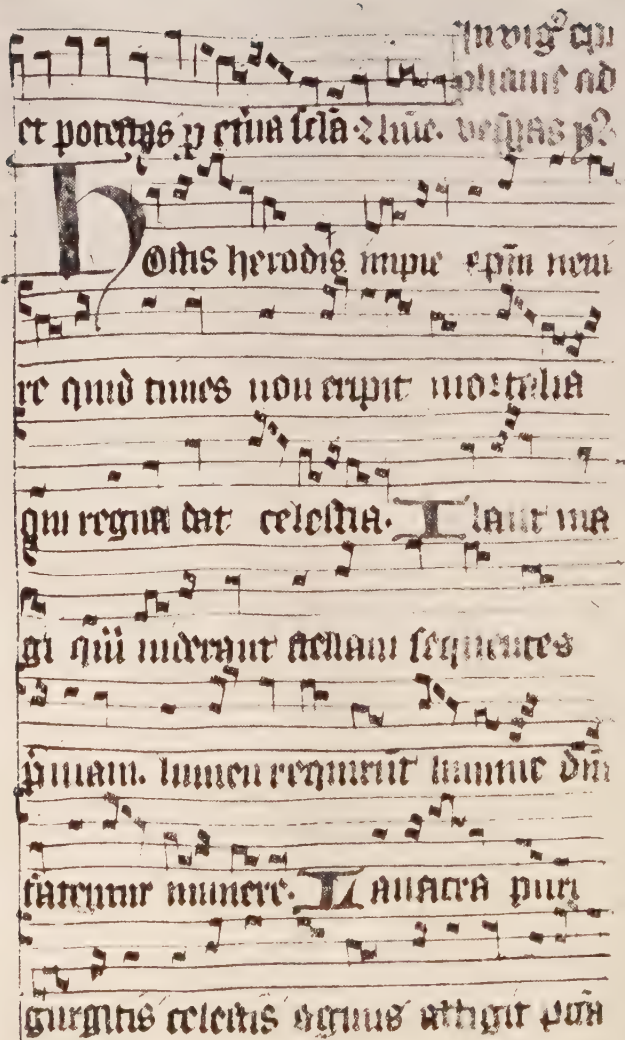 In vig° epi
phanie ad
et potestas p et̄na scl̄a · ⁊ hic. vesp̄as ym̄
Hostis herodis impie xp̄m veni
re quid times non eripit mortalia
qui regna dat celestia. Ibant ma
gi quā viderant stellam sequentes
p̄uiam. lumen requirūt lumine dm̄
fatentur munere. Lauacra puri
gurgitis celestis agnus attigit pcc̄a